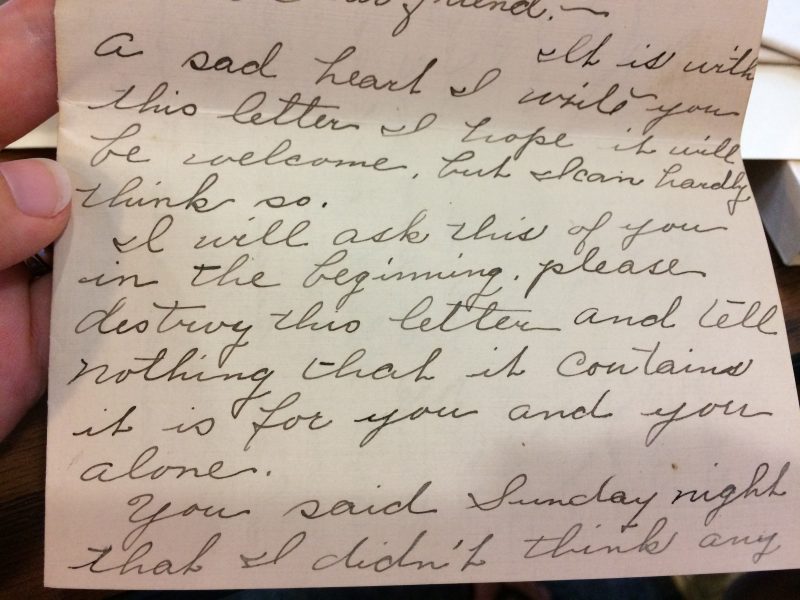 friend.—
It is with
a sad heart I write you
this letter I hope it will
be welcome, but I can hardly
think so.
I will ask this of you
in the beginning. please
destroy this letter and tell
nothing that it contains
it is for you and you
alone.
You said Sunday night
that I didn't think any